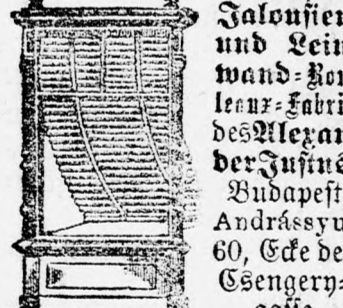 Jalousien
und Lein
wand-Rou
leaux-Fabri
des Alexan
der Justus
Budapest
Andrássyu
60, Ecke de
Csengery-
gasse